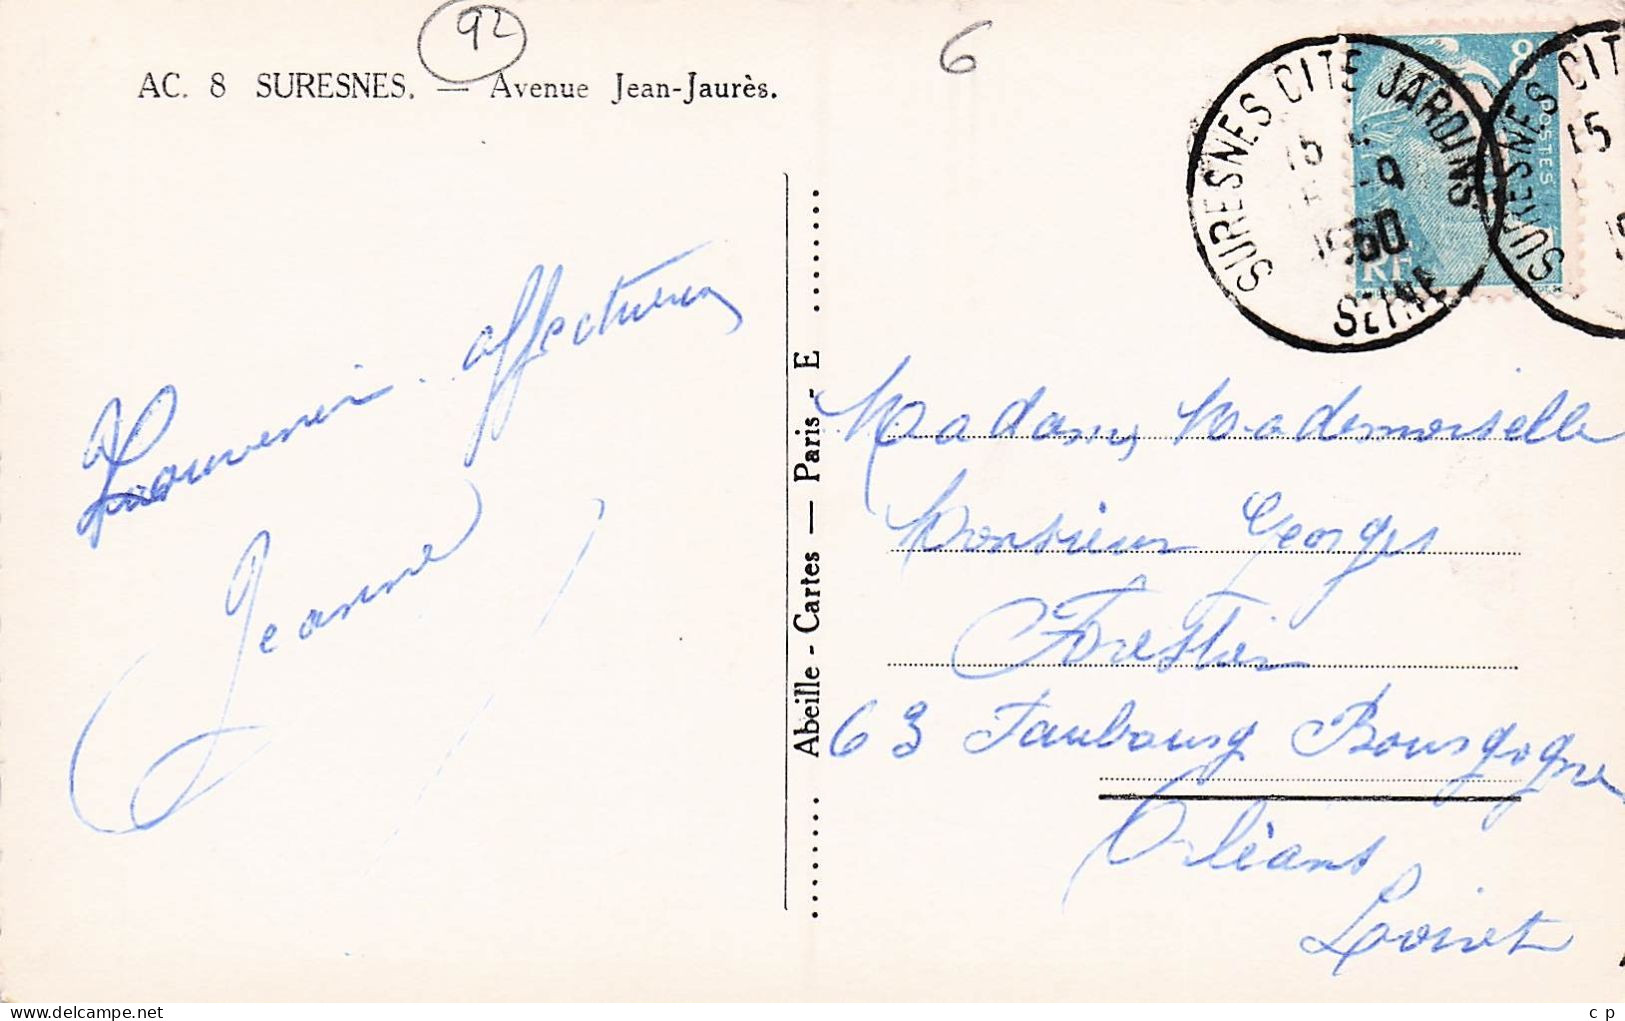 92
6
AC. 8 SURESNES. — Avenue Jean-Jaurès.
SURESNES CITE JARDINS
15
1950
SEINE
8
POSTES
RF
SURESNES CIT
15
Souvenir affectueux
Jeanne
Abeille - Cartes — Paris - E
Madame, Mademoiselle
Monsieur Georges
Forestier
63 Faubourg Bourgogne
Orléans
Loiret
www.delcampe.net
c p